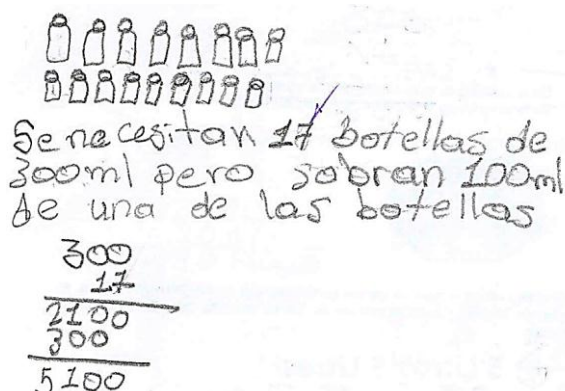 Se necesitan 17 botellas de
300ml pero sobran 100ml
de una de las botellas
300
17
2100
300
5100